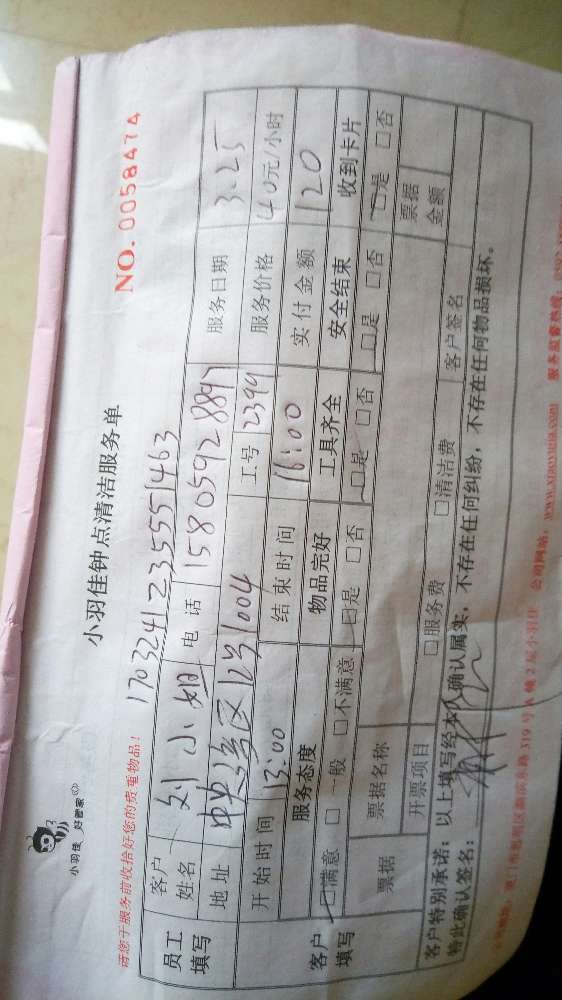 小羽佳 好管家
小羽佳钟点清洁服务单
NO. 0058474
请您于服务前收拾好您的贵重物品!
1703241235551463
员工填写
客户姓名 刘小姐 电话 服务日期 3.25
地址 工号 2399 服务价格 40元/小时
开始时间 13:00 结束时间 16:00 实付金额 120
客户填写
服务态度 物品完好 工具齐全 安全结束 收到卡片
□满意 □一般 □不满意 □是 □否 □是 □否 □是 □否 □是 □否
票据 票据名称 票据金额
开票项目 □服务费 □清洁费 客户签名
客户特别承诺:以上填写经本人确认属实,不存在任何纠纷,不存在任何物品损坏。
特此确认签名:
319号A幢2层小羽佳 公司网站: www.xiaoyujia.com 服务监督热线: